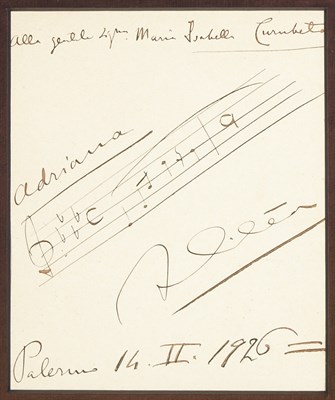 Alla gentile Sigra Maria Isabella Curubeto
Adriana
F. Cilèa
Palermo 14. II. 1926